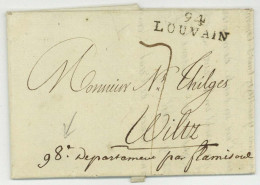 94
LOUVAIN
7
Monsieur N. Thilges
Wiltz
98e Departement par flamisoul